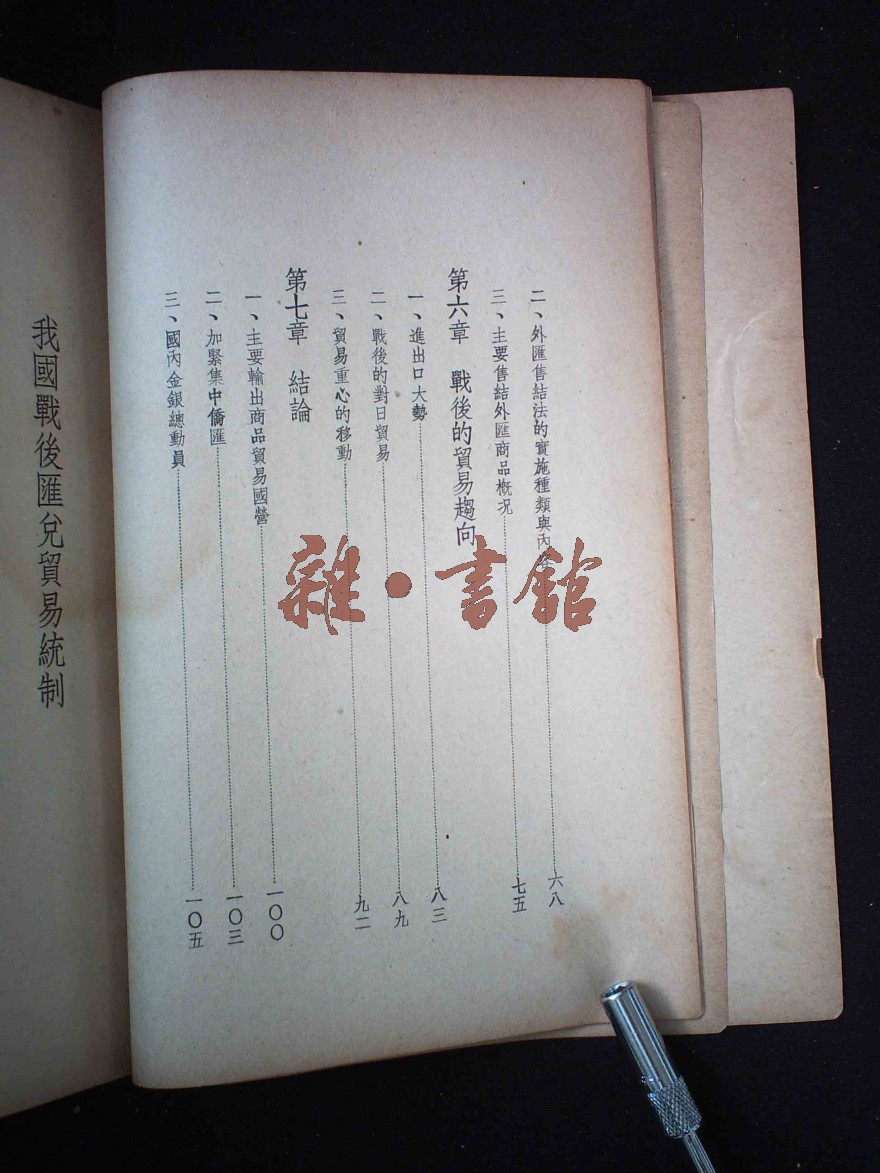 二、外匯售結法的實施種類與內容……六八
三、主要售結外匯商品概況……七五
第六章 戰後的貿易趨向
一、進出口大勢……八三
二、戰後的對日貿易……八九
三、貿易重心的移動……九二
第七章 結論
一、主要輸出商品貿易國營……一〇〇
二、加緊集中僑匯……一〇三
三、國內金銀總動員……一〇五
我國戰後匯兌貿易統制
雜·書館